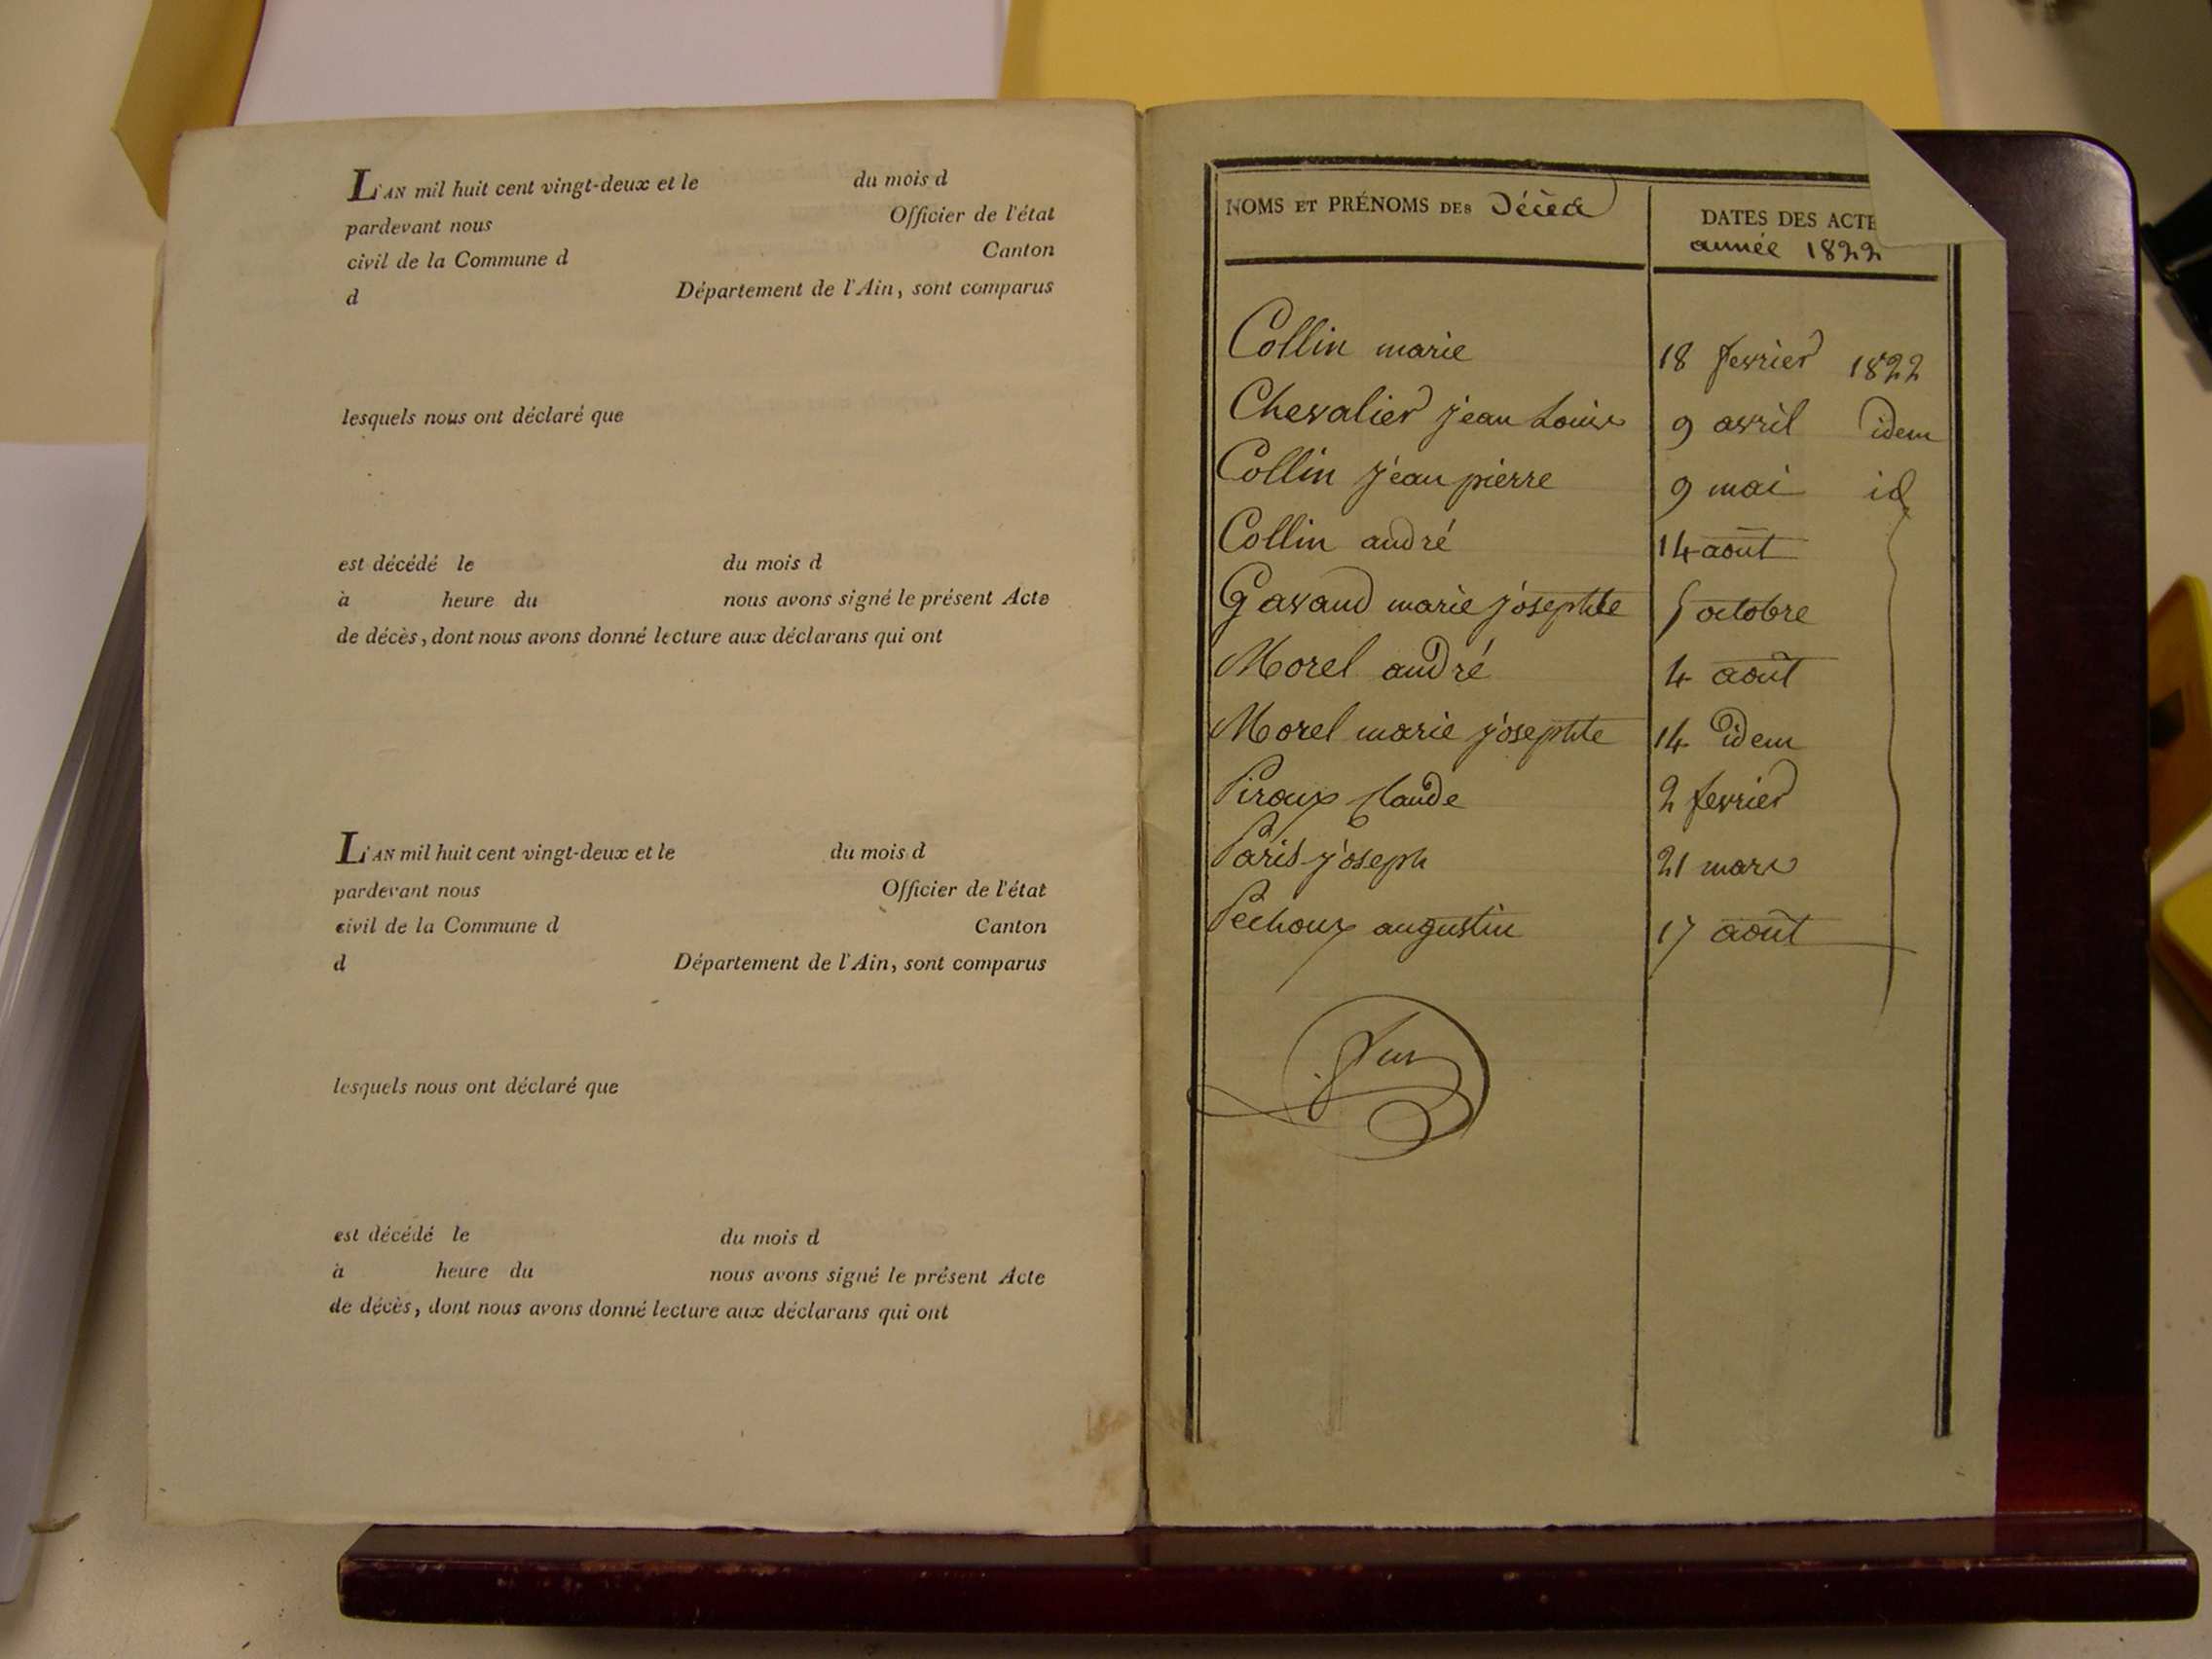 L'AN mil huit cent vingt-deux et le du mois d
pardevant nous Officier de l'état
civil de la Commune d Canton
d Département de l'Ain, sont comparus
lesquels nous ont déclaré que
est décédé le du mois d
à heure du nous avons signé le présent Acte
de décès, dont nous avons donné lecture aux déclarans qui ont
L'AN mil huit cent vingt-deux et le du mois d
pardevant nous Officier de l'état
civil de la Commune d Canton
d Département de l'Ain, sont comparus
lesquels nous ont déclaré que
est décédé le du mois d
à heure du nous avons signé le présent Acte
de décès, dont nous avons donné lecture aux déclarans qui ont
NOMS ET PRÉNOMS DES Décéd DATES DES ACTE
année 1822
Collin marie 18 fevrier 1822
Chevalier jean Louis 9 avril idem
Collin jean pierre 9 mai id
Collin andré 14 août
Gavand marie josephte 5 octobre
Morel andré 4 août
Morel marie josephte 14 idem
Piroux Claude 2 fevrier
Paris joseph 21 mars
Pechoux augustin 17 août